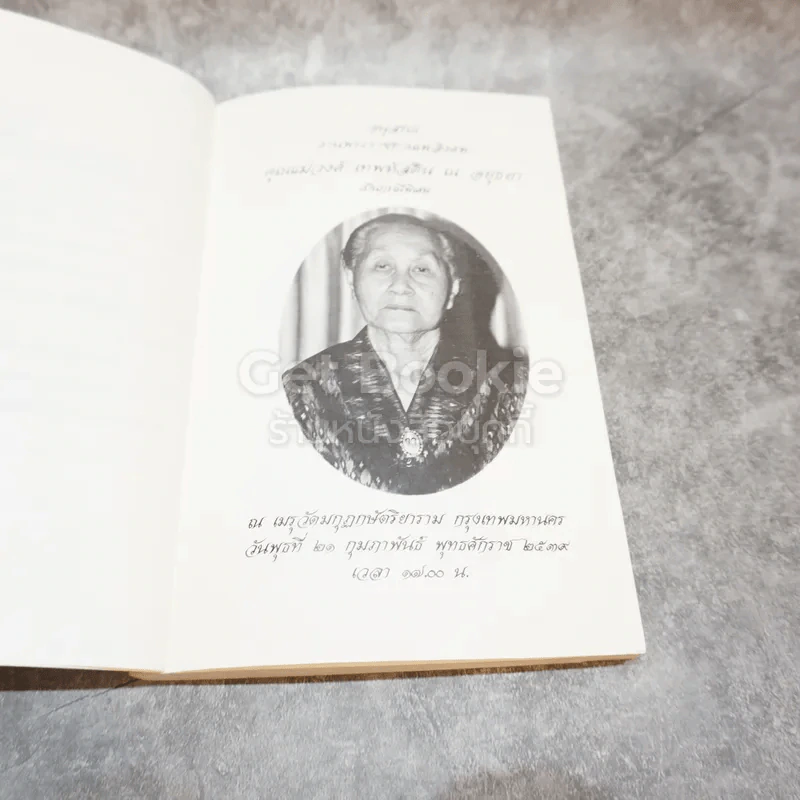 งานพระราชทานเพลิงศพ
ณ อยุธยา
Get Bookie
ร้านหนังสือบุคกี้
ณ เมรุวัดมกุฏกษัตริยาราม กรุงเทพมหานคร
วันพุธที่ ๒๑ กุมภาพันธ์ พุทธศักราช ๒๕๓๙
เวลา ๑๗.๐๐ น.